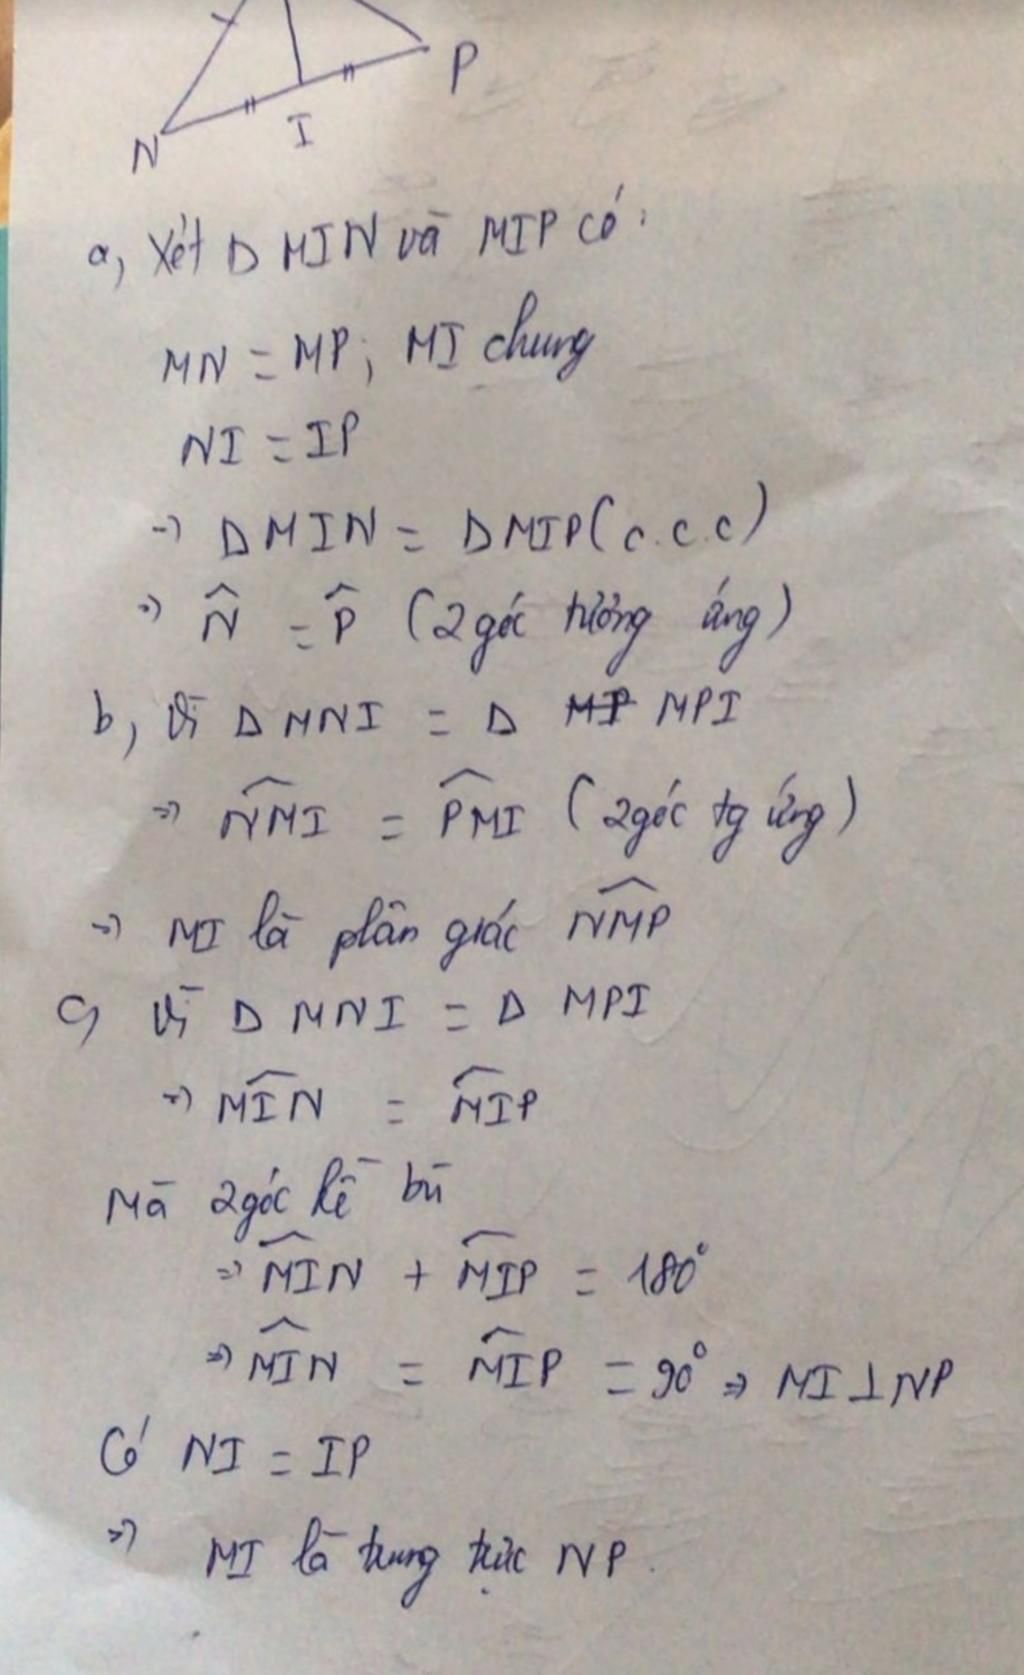 P
I
N
a, Xét Δ MIN và MIP có:
MN = MP; MI chung
NI = IP
=> Δ MIN = Δ MIP (c.c.c)
=> N̂ = P̂ (2 góc tương ứng)
b, Vì Δ MNI = Δ MPI
=> N̂MI = P̂MI (2 góc tg ứng)
=> MI là phân giác N̂MP
c, Vì Δ MNI = Δ MPI
=> M̂IN = M̂IP
Mà 2 góc kề bù
=> M̂IN + M̂IP = 180°
=> M̂IN = M̂IP = 90° => MI ⊥ NP
Có NI = IP
=> MI là trung trực NP.